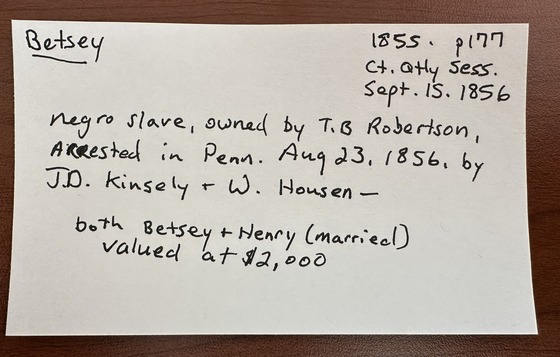 Betsey
1855. p177
Ct. Qtly Sess.
Sept. 15. 1856
negro slave, owned by T.B Robertson,
Arrested in Penn. Aug 23, 1856, by
J.D. Kinsely + W. Housen —
both Betsey + Henry (married)
valued at $2,000